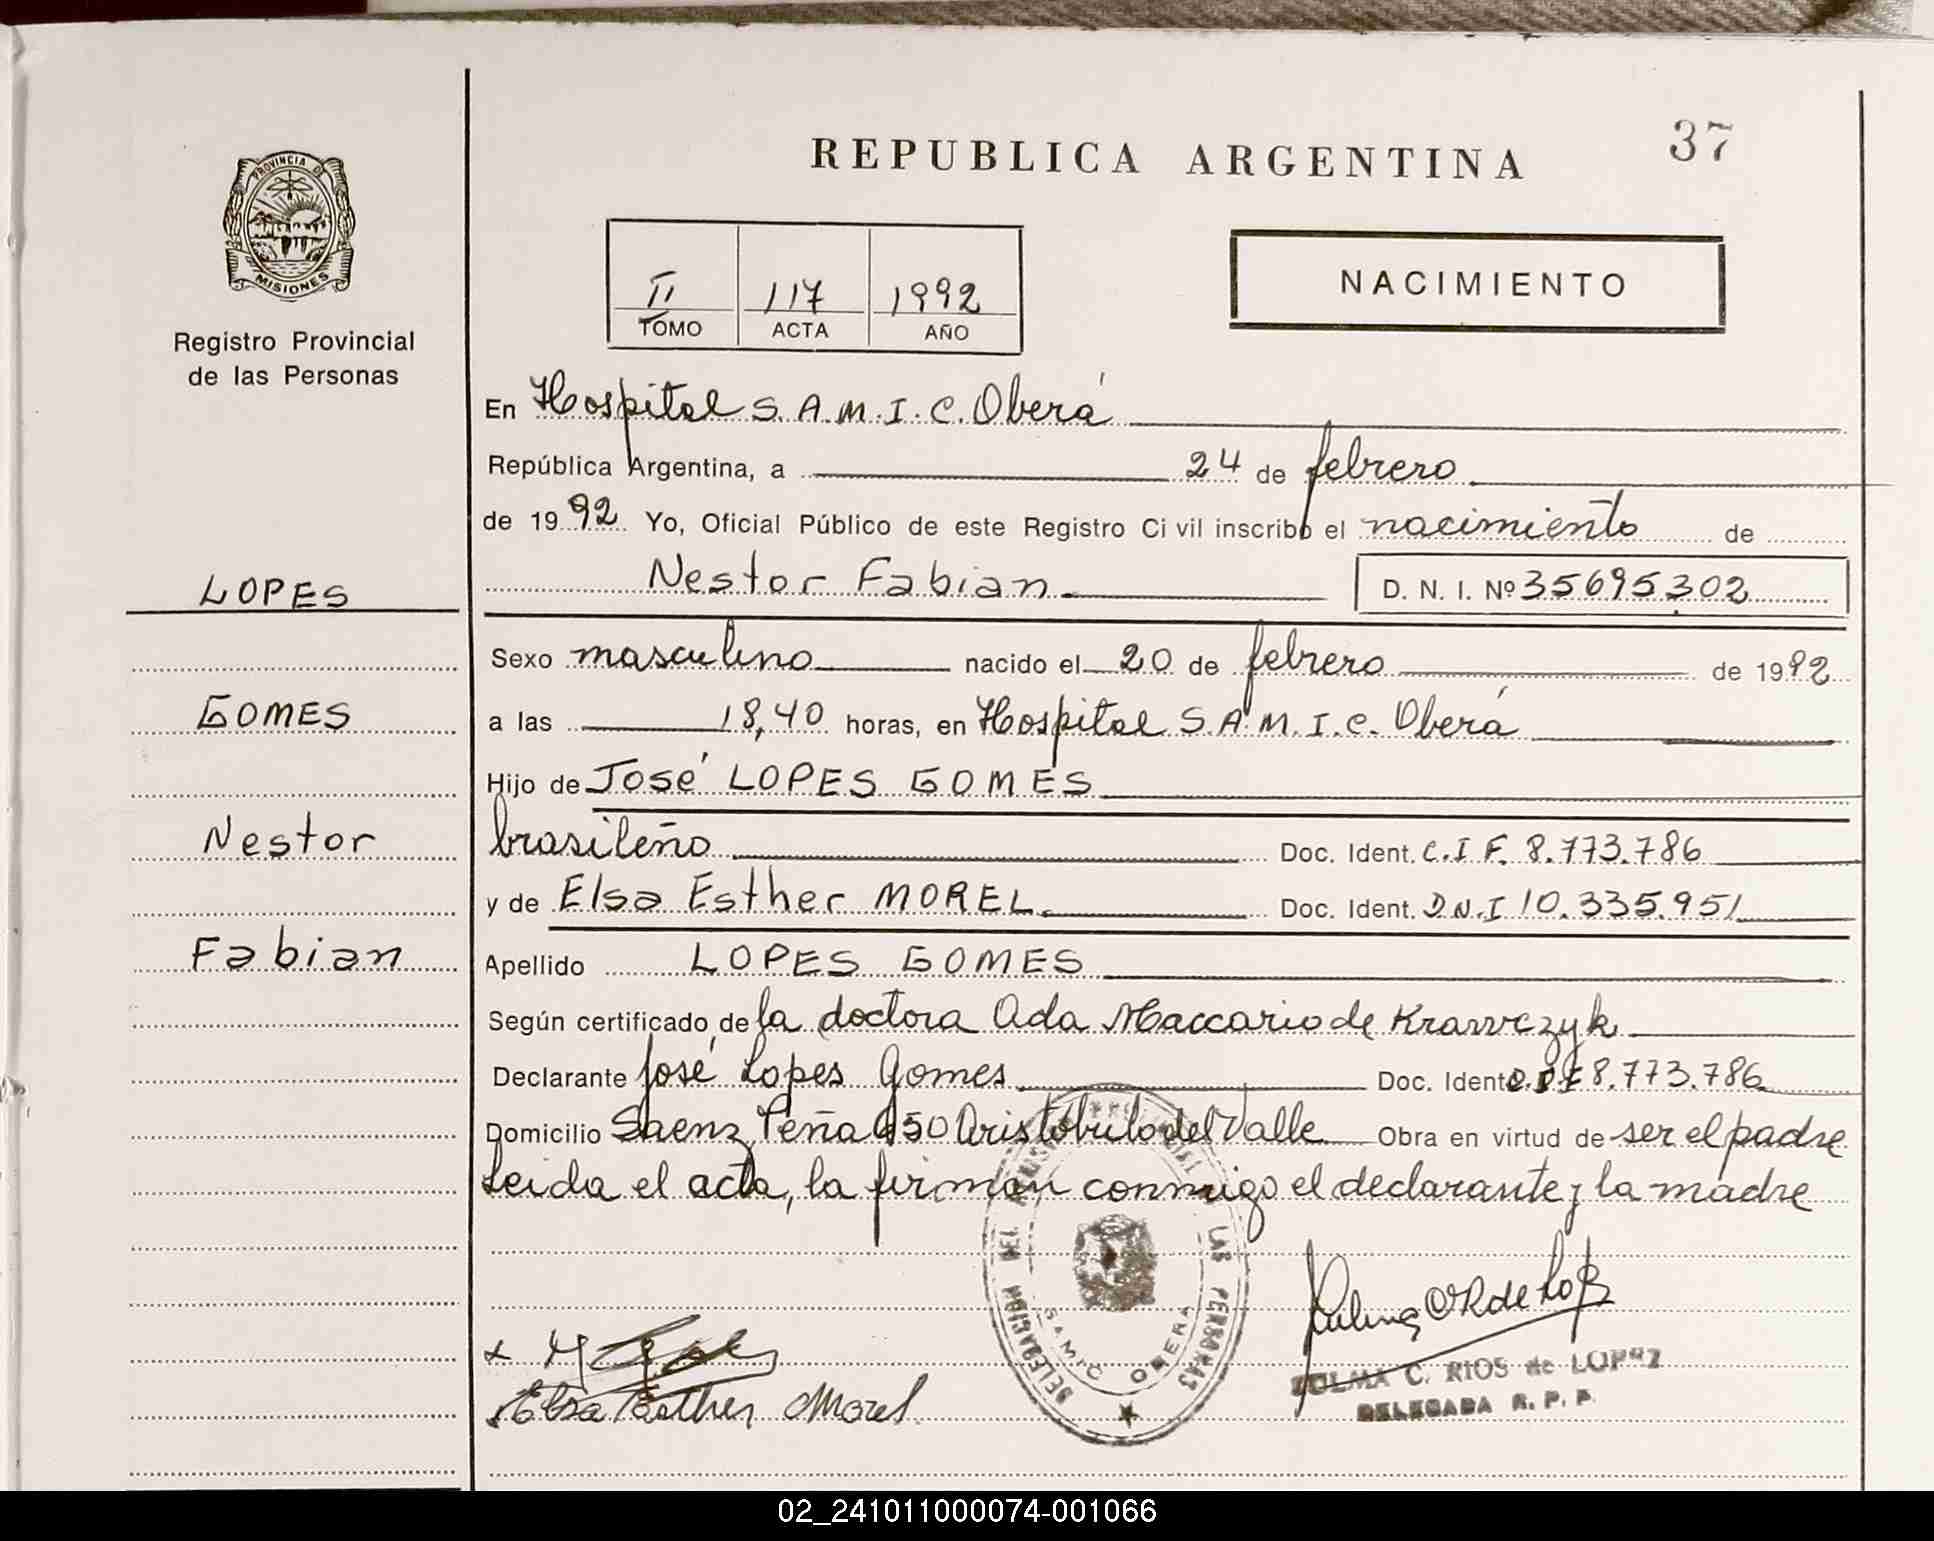 REPUBLICA ARGENTINA
37
PROVINCIA DE
MISIONES
Registro Provincial
de las Personas
II 117 1992
TOMO ACTA AÑO
NACIMIENTO
En Hospital S.A.M.I.C. Oberá
República Argentina, a 24 de febrero
de 1992 Yo, Oficial Público de este Registro Civil inscribo el nacimiento de
Nestor Fabian D. N. I. Nº 35695302
LOPES
GOMES
Nestor
Fabian
Sexo masculino nacido el 20 de febrero de 1992
a las 18,40 horas, en Hospital S.A.M.I.C. Oberá
Hijo de José LOPES GOMES
brasileño Doc. Ident. C.I F. 8.773.786
y de Elsa Esther MOREL Doc. Ident. D.N.I 10.335.951
Apellido LOPES GOMES
Según certificado de la doctora Ada Maccario de Krawczyk
Declarante José Lopes Gomes Doc. Ident 8.773.786
Domicilio Saenz Peña 450 Aristóbulo del Valle Obra en virtud de ser el padre
Leida el acta, la firman conmigo el declarante y la madre
DELEGACION DEL LAS PERSONAS
SAMIC OBERA
Elsa Esther Morel
ZULMA C. RIOS de LOPEZ
DELEGADA R. P. P.
02_241011000074-001066